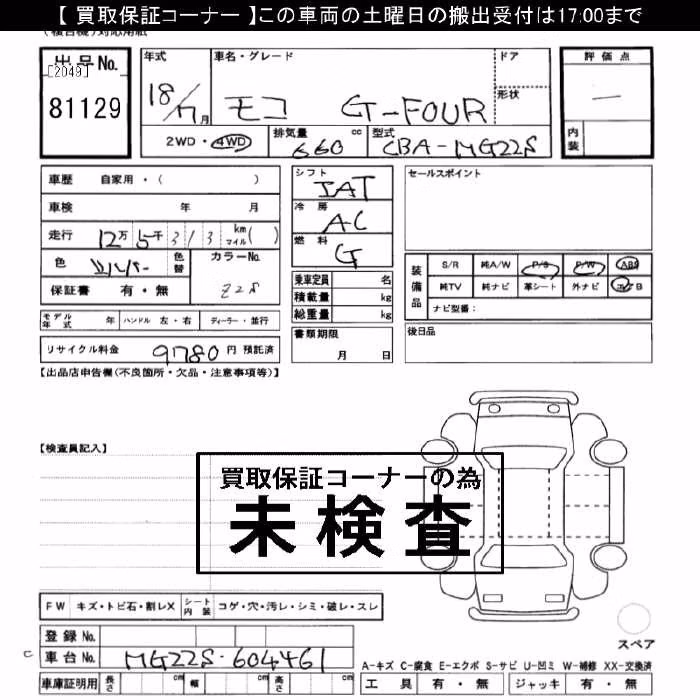 【 買取保証コーナー 】この車両の土曜日の搬出受付は17:00まで
出品No.
[2049]
81129
年式 車名・グレード ドア 評価点
18/7月 モコ GT-FOUR 形状 —
2WD・4WD 排気量 cc 660 型式 CBA-MG22S 内装
車歴 自家用・( )
車検 年 月
走行 12万 5千 313 km マイル( )
色 シルバー 色替 カラーNo. Z2S
保証書 有・無
シフト IAT
冷房 AC
燃料 G
乗車定員 名
積載量 kg
総重量 kg
書類期限
月 日
セールスポイント
装備品 S/R 純A/W P/S P/W ABS
純TV 純ナビ 革シート 外ナビ エアB
ナビ型番:
後日品
モデル年式 年 ハンドル 左・右 ディーラー・並行
リサイクル料金 9780 円 預託済
【出品店申告欄(不良箇所・欠品・注意事項等)】
【検査員記入】
買取保証コーナーの為
未検査
FW キズ・トビ石・割レX シート内装 コゲ・穴・汚レ・シミ・破レ・スレ
登録 No.
C 車台 No. MG22S-604461
車庫証明用 長さ cm 幅 cm 高さ cm
スペア
A-キズ C-腐食 E-エクボ S-サビ U-凹ミ W-補修 XX-交換済
工具 有・無 ジャッキ 有・無